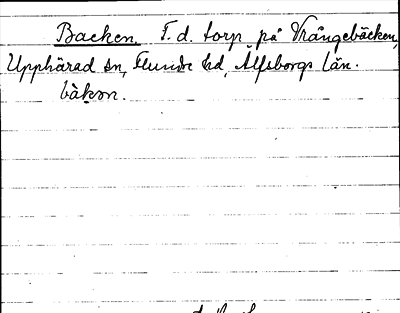 Backen. F. d. torp på Vrångebäcken,
Upphärad sn, Flundre hd, Älfsborgs län.
bàkɔn.